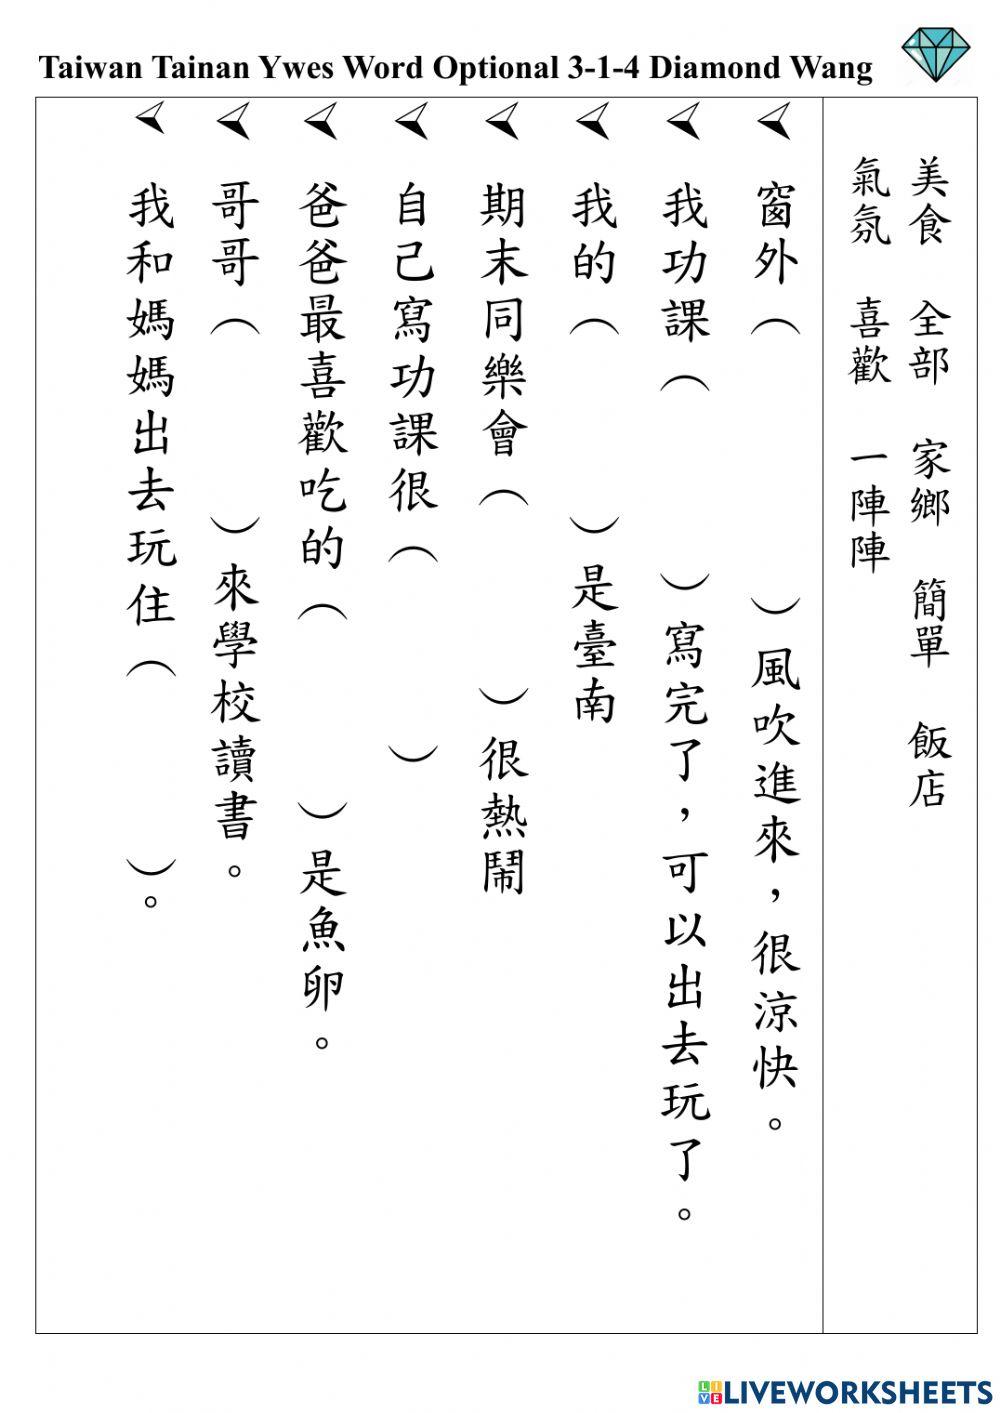 Taiwan Tainan Ywes Word Optional 3-1-4 Diamond Wang
美食 全部 家鄉 簡單 飯店
氣氛 喜歡 一陣陣
窗外( )風吹進來，很涼快。
我功課( )寫完了，可以出去玩了。
我的( )是臺南
期末同樂會( )很熱鬧
自己寫功課很( )
爸爸最喜歡吃的( )是魚卵。
哥哥( )來學校讀書。
我和媽媽出去玩住( )。
LIVEWORKSHEETS